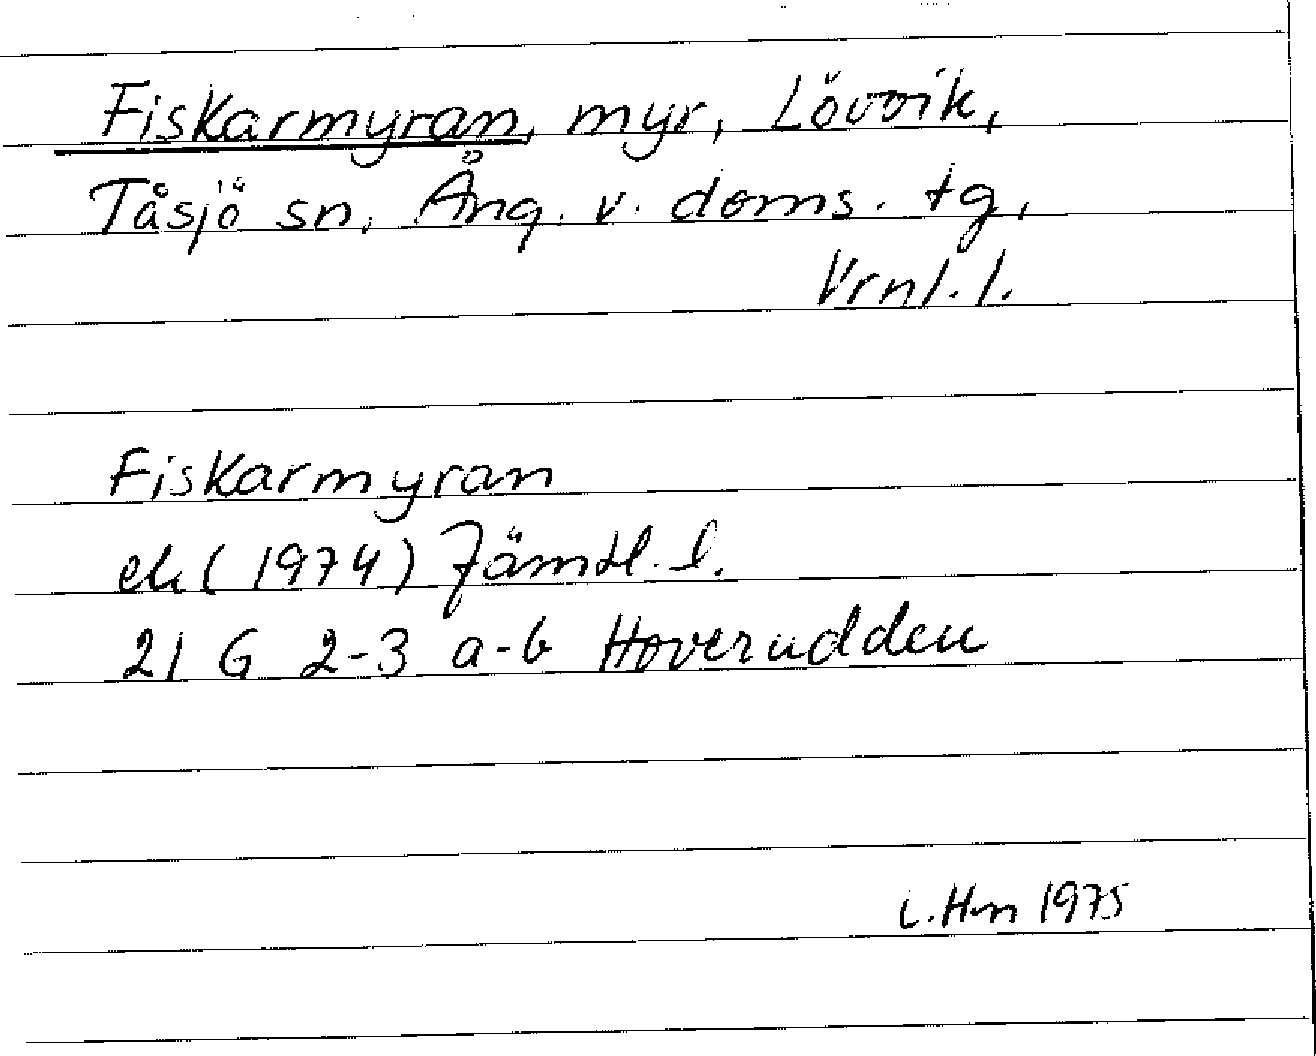 Fiskarmyran, myr, Lövvik,
Tåsjö sn, Ång. v. doms. tg,
Vrnl. l.
Fiskarmyran
ek (1974) Jämtl. l.
21 G 2-3 a-b Hoverudden
i. Hm 1975